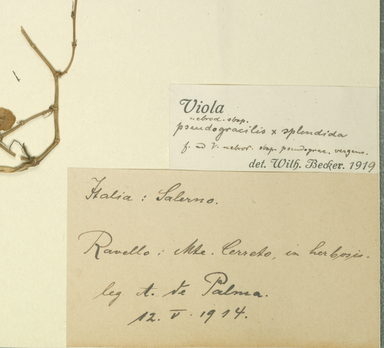 Viola
nebrod. sbsp.
pseudogracilis x splendida
f. ad V. nebr. sbsp. pseudograc. vergens.
det. Wilh. Becker. 1919
Italia : Salerno.
Ravello : Mte. Cerreto, in herbosis.
leg A. de Palma.
12. V. 1914.